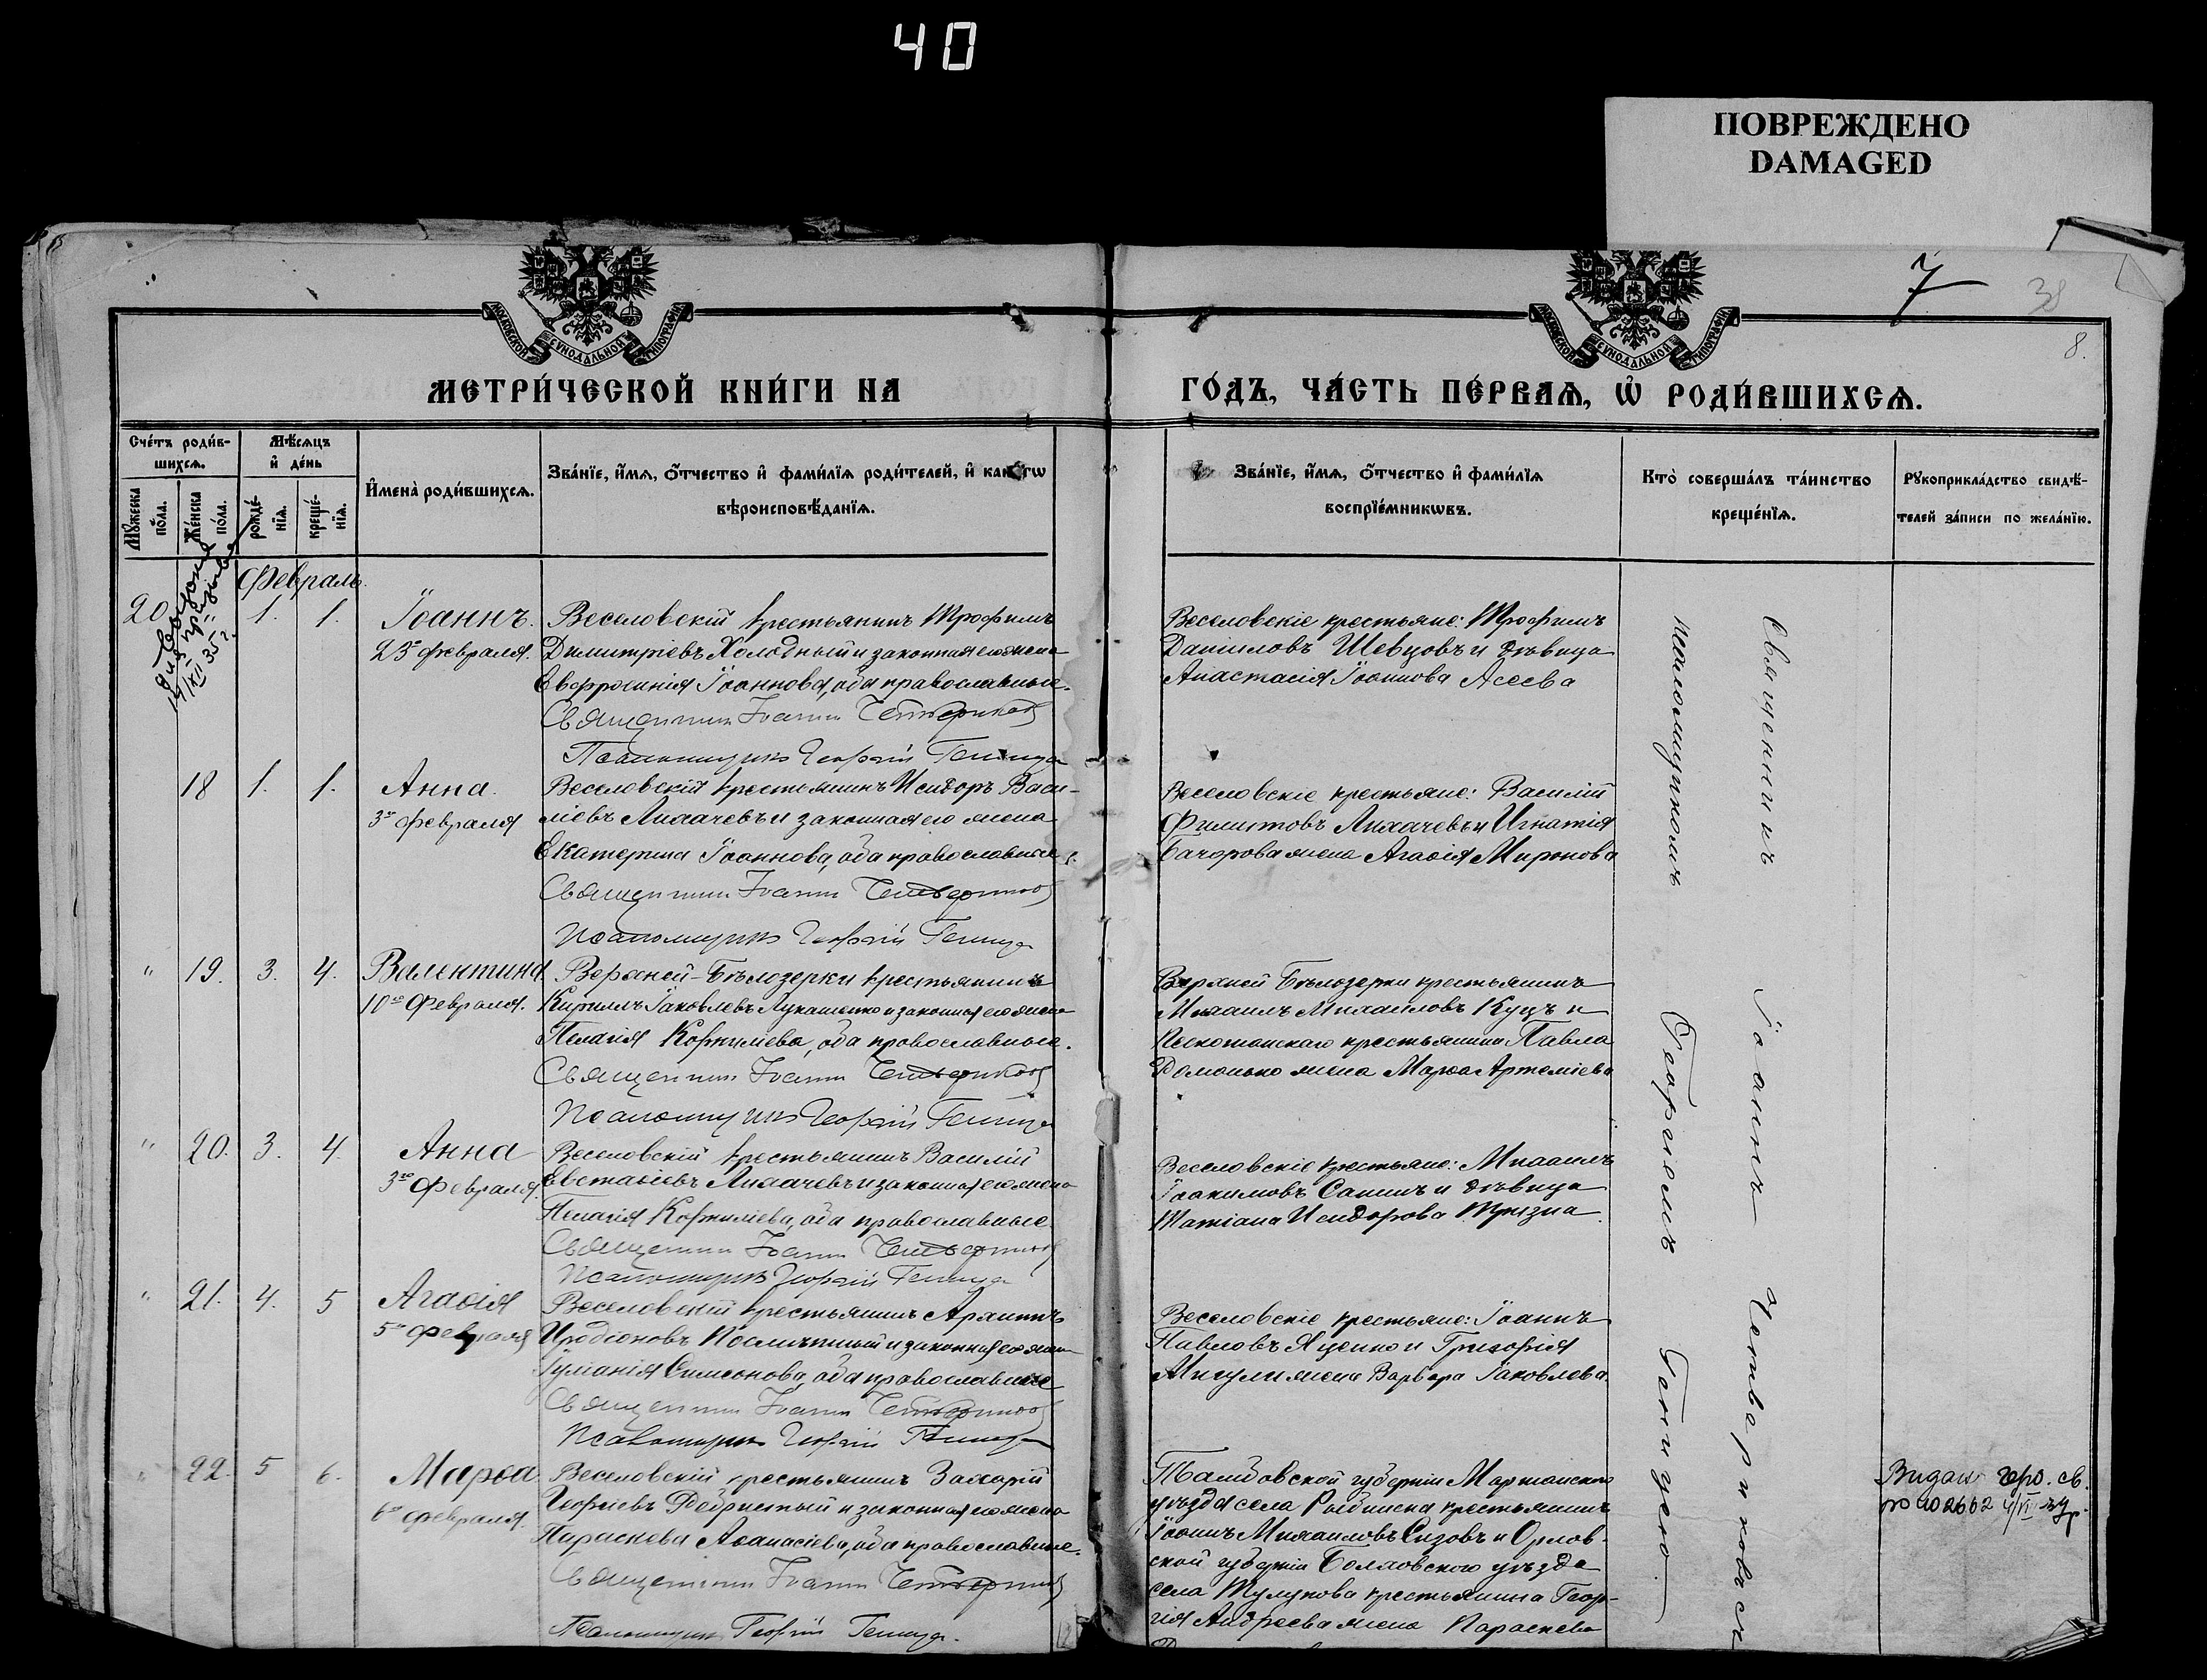 40
ПОВРЕЖДЕНО
DAMAGED
7
38
8.
МОСКОВСКОЙ СѴНОДАЛЬНОЙ ТИПОГРАФІИ
МОСКОВСКОЙ СѴНОДАЛЬНОЙ ТИПОГРАФІИ
МЕТРИ́ЧЕСКОЙ КНИ́ГИ НА
ГО́ДЪ, ЧА́СТЬ ПЕ́РВАѦ, Ѡ РОДИ́ВШИХСѦ.
Сче́тъ роди́в-
шихсѧ.
Мѣ́сѧцъ
и҆ де́нь
Мꙋ́жеска
по́ла.
Же́нска
по́ла.
рожде́-
нїѧ.
креще́-
нїѧ.
И҆мена̀ роди́вшихсѧ.
Зва́нїе, и҆́мѧ, ѻ҆́тчество и҆ фами́лїѧ роди́телей, и҆ какагѡ
вѣроисповѣ́данїѧ.
Зва́нїе, и҆́мѧ, ѻ҆́тчество и҆ фами́лїѧ
воспрїе́мникѡвъ.
Кто̀ соверша́лъ та́инство
креще́нїѧ.
Рꙋкоприкла́дство свидѣ́-
телей за́писи по жела́нїю.
Февраль.
20. 1. 1. Іоаннъ.
23го февраля.
Веселовскій крестьянинъ Трофимъ
Димитріевъ Холодный и законная его жена
Евфросинія Іоаннова, оба православные.
Священникъ Іоаннъ Четвериковъ
Псаломщикъ Георгій Геница
Веселовскіе крестьяне: Трофимъ
Даниловъ Шевцовъ и дѣвица
Анастасія Іоаннова Асеева
18 1. 1. Анна.
3го февраля
Веселовскій крестьянинъ Исидоръ Васи-
ліевъ Лихачевъ и законная его жена
Екатерина Іоаннова, оба православные.
Священникъ Іоаннъ Четвериковъ
Псаломщикъ Георгій Геница
Веселовскіе крестьяне: Василій
Филиповъ Лихачевъ и Игнатія
Бачорова жена Агаѳія Миронова
" 19. 3. 4. Валентина.
10го февраля.
Верхней-Бѣлозерки крестьянинъ
Кириллъ Іаковлевъ Лукашенко и законная его жена
Пелагія Корниліева, оба православные.
Священникъ Іоаннъ Четвериковъ
Псаломщикъ Георгій Геница
Верхней Бѣлозерки крестьянинъ
Михаилъ Михаиловъ Куцъ и
крестьянина Павла
жена Марѳа Артеміева
" 20. 3. 4. Анна
3го февраля.
Веселовскій крестьянинъ Василій
Евстаѳіевъ Лихачевъ и законная его жена
Пелагія Корниліева, оба православные.
Священникъ Іоаннъ Четвериковъ
Псаломщикъ Георгій Геница
Веселовскіе крестьяне: Михаилъ
Іоакимовъ Санинъ и дѣвица
Татіана Исидорова Тризна.
" 21. 4. 5 Агаѳія
5го февраля
Веселовскій крестьянинъ Архипъ
Иродіоновъ и законная его жена
Симеонова, оба православные
Священникъ Іоаннъ Четвериковъ
Псаломщикъ Георгій Геница
Веселовскіе крестьяне: Іоаннъ
Павловъ Яценко и Григорія
Мигули жена Варвара Іаковлева.
" 22. 5 6. Марѳа.
6го февраля.
Веселовскій крестьянинъ Захарій
Георгіевъ и законная его жена
Параскева Аѳанасіева, оба православные.
Священникъ Іоаннъ Четвериковъ
Псаломщикъ Георгій Геница.
Тамбовской губерніи Моршанскаго
уѣзда села крестьянинъ
Іоаннъ Михаиловъ Сизовъ и Орлов-
ской губерніи Болховского уѣзда
села крестьянина Геор-
гія Андреева жена Параскева
Священникъ Іоаннъ Четвериковъ съ
псаломщикомъ Георгіемъ Геницею.